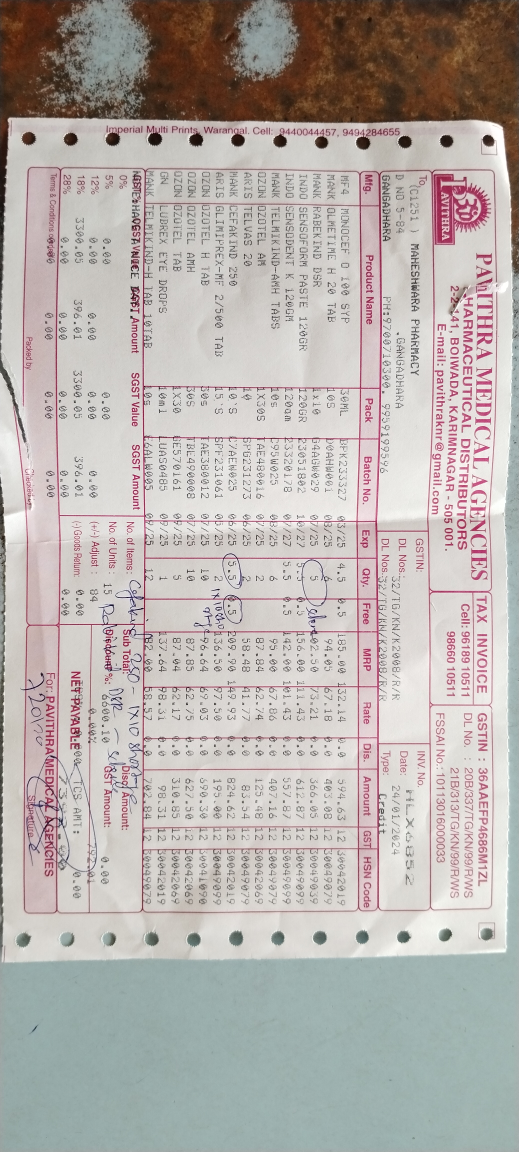 Imperial Multi Prints, Warangal. Cell: 9440044457, 9494284655
PAVITHRA
PAVITHRA MEDICAL AGENCIES
PHARMACEUTICAL DISTRIBUTORS
2-2-141, BOIWADA, KARIMNAGAR - 505 001.
E-mail: pavithraknr@gmail.com
TAX INVOICE
Cell: 96189 10511
98660 10511
GSTIN : 36AAEFP4686M1ZL
DL No. : 20B/337/TG/KN/99/R/WS
21B/313/TG/KN/99/R/WS
FSSAI No.: 10113016000033
To, (C1251 ) MAHESHWARA PHARMACY
D NO 5-84 .GANGADHARA
GANGADHARA PH:9700710300. 9959109596
GSTIN:
DL Nos.
INV. No.
Date: 24/01/2024
Type: Credit
Mfg. Product Name Pack Batch No. Exp Qty. Free MRP Rate Dis. Amount GST HSN Code
MF4 MONOCEF O 100 SYP 30ML 03/25 4.5 0.5 185.00 132.14 0.0 594.63 12 30042019
MANK OLMETIME H 20 TAB 10S D0AHW001 08/25 6 94.05 67.18 0.0 403.08 12 30049079
MANK RABEKIND DSR 1x10 G4AHW029 07/25 5 102.50 73.21 0.0 366.05 12 30049039
INDO SENSOFORM PASTE 120GR 120GR 23051802 10/27 5.5 0.5 156.00 111.43 0.0 612.87 12 30049099
INDO SENSODENT K 120GM 120gm 23320178 07/27 5.5 0.5 142.00 101.43 0.0 557.87 12 30049099
MANK TELMIKIND-AMH TABS 10s 08/25 6 95.00 67.86 0.0 407.16 12 30049079
OZON OZOTEL AM 1X30S TAE481016 07/25 2 87.84 62.74 0.0 125.48 12 30049079
ARIS TELVAS 20 10 SPG231273 06/25 2 58.48 41.77 0.0 83.54 12 30049079
MANK CEFAKIND 250 10'S C7AEW025 06/25 5.5 0.5 209.90 149.93 0.0 824.62 12 30042019
ARIS GLIMIPREX-MF 2/500 TAB 15'S SPF231061 03/25 2 136.50 97.50 0.0 195.00 12 30049099
OZON OZOTEL H TAB 30s TAE380012 07/25 10 96.64 69.03 0.0 690.30 12
OZON OZOTEL AMH 30S TBE490008 07/25 10 87.85 62.75 0.0 627.50 12 30042069
OZON OZOTEL TAB 1X30 GE570161 09/25 5 87.04 62.17 0.0 310.85 12 30042069
GN LUBREX EYE DROPS 10ml UAS0485 09/25 1 137.64 98.31 0.0 98.31 12 30042079
MANK TELMIKIND-H TAB 10TAB 10s 09/25 12 82.00 58.57 0.0 702.84 12 30049079
SGST Value SGST Amount
0%
5% 0.00 0.00
12% 0.00 0.00
18% 3300.05 396.01 3300.05 396.01
28% 0.00 0.00 0.00 0.00
No. of Items:
No. of Units: 15
(+/-) Adjust : 84
(-) Goods Return: 0.00
Sub Total: 6600.10
Discount %: 0.00%
Disc. Amount
GST Amount: 0.00
NET PAYABLE
TCS AMT: 0.00
Terms & Conditions
Packed by
For: PAVITHRA MEDICAL AGENCIES
Signature